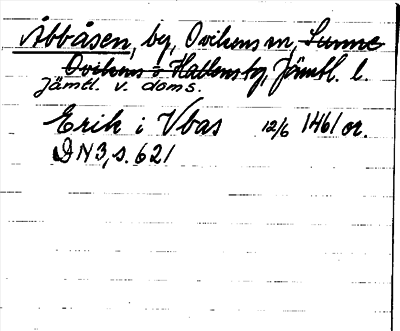 Åbbåsen, by, Ovikens sn, Sunne
Ovikens o Hallens tg, Jämtl. l.
Jämtl. v. doms.
Erik i Vbas 12/6 1461 or.
DN3, s. 621